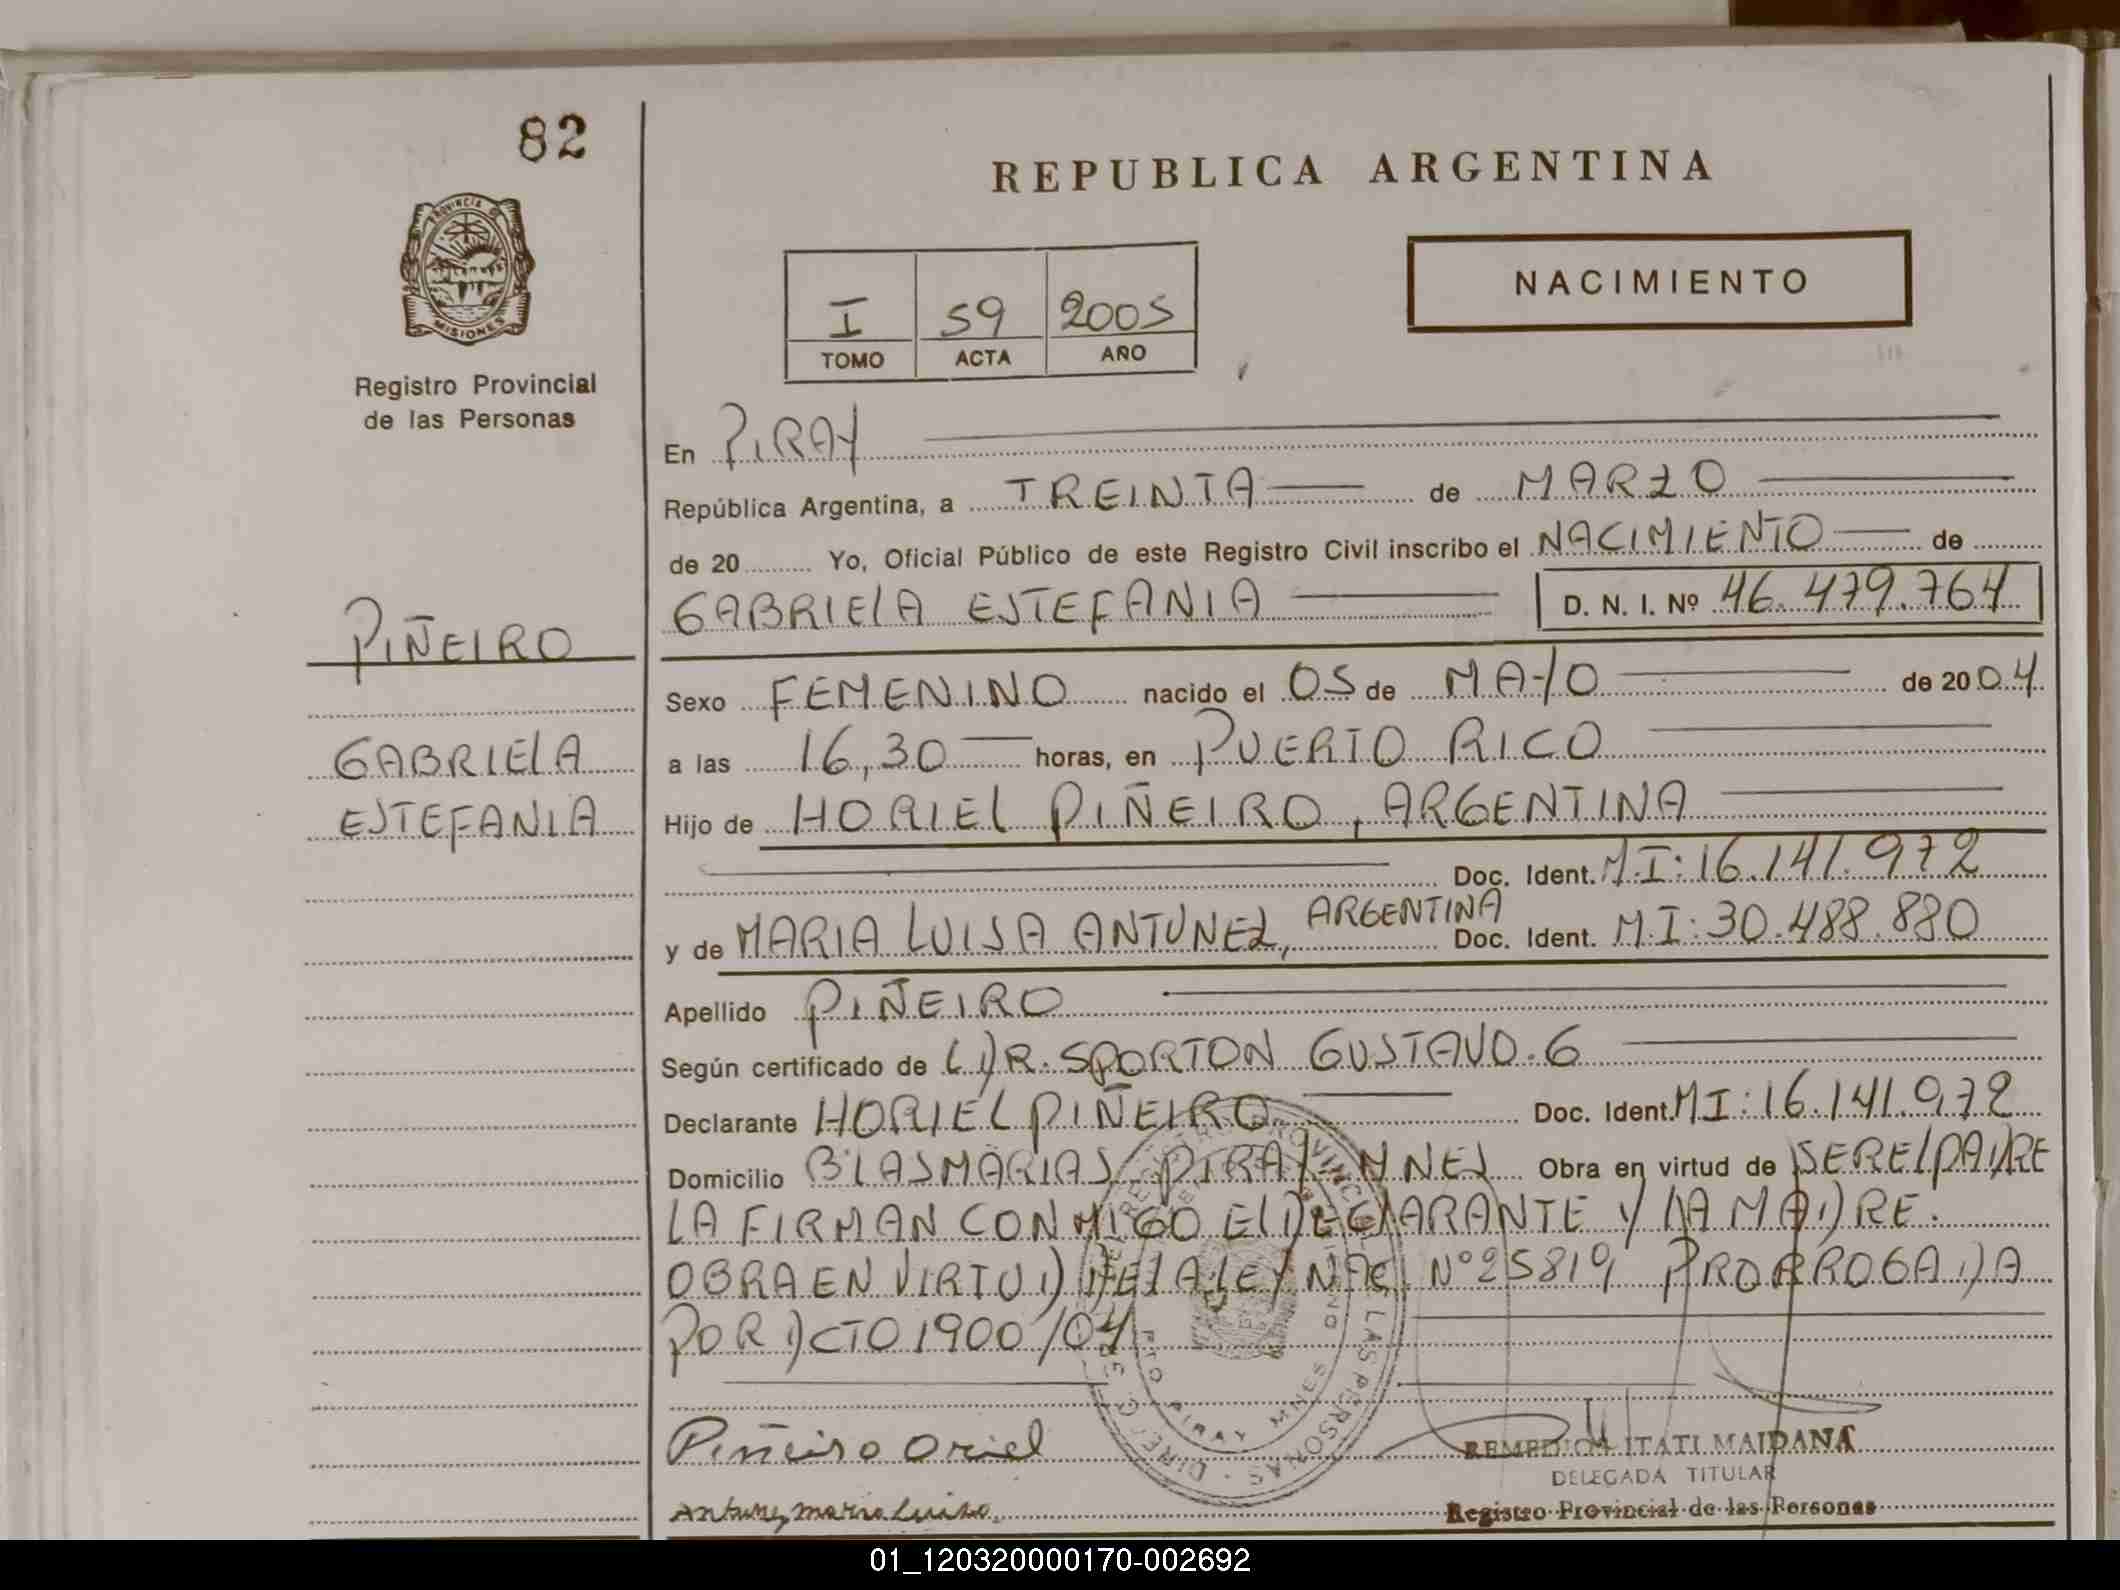 82
REPUBLICA ARGENTINA
PROVINCIA DE
MISIONES
NACIMIENTO
I 59 2005
TOMO ACTA AÑO
Registro Provincial
de las Personas
En PIRAY
República Argentina, a TREINTA de MARZO
de 20 Yo, Oficial Público de este Registro Civil inscribo el NACIMIENTO de
GABRIELA ESTEFANIA D. N. I. Nº 46.479.764
PIÑEIRO
Sexo FEMENINO nacido el 05 de MAYO de 2004
GABRIELA
a las 16,30 horas, en PUERTO RICO
ESTEFANIA
Hijo de HORIEL PIÑEIRO, ARGENTINA
Doc. Ident. M.I: 16.141.972
y de MARIA LUISA ANTUNEZ, ARGENTINA Doc. Ident. M.I: 30.488.880
Apellido PIÑEIRO
Según certificado de DR. SPORTON GUSTAVO. G
Declarante HORIEL PIÑEIRO Doc. Ident. MI: 16.141.972
Domicilio Bº LAS MARIAS, PIRAY MNES Obra en virtud de SER EL PADRE
LA FIRMAN CONMIGO EL DECLARANTE Y LA MADRE.
OBRA EN VIRTUD DE LA LEY NAC. Nº 25819, PRORROGADA
POR DCTO 1900/04
Piñeiro Oriel
REMEDIOS ITATI MAIDANA
DELEGADA TITULAR
Antunez maria Luisa
Registro Provincial de las Personas
PTO PIRAY MNES
01_120320000170-002692